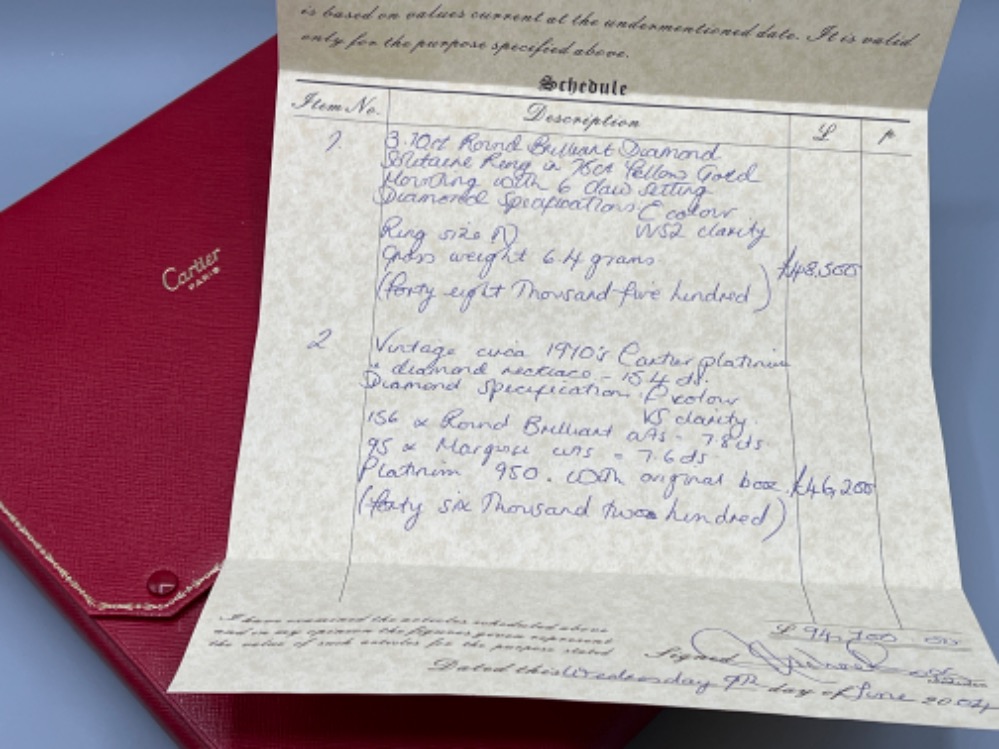 is based on values current at the undermentioned date. It is valid
only for the purpose specified above.
Schedule
Item No. Description £ p
1. 3.10ct Round Brilliant Diamond
Solitaire Ring in 18ct Yellow Gold
Mounting with 6 claw setting
Diamond Specifications: E colour
Ring size N VVS2 clarity
Gross weight 6.4 grams
(forty eight Thousand five hundred) £48,500
2 Vintage circa 1970's Cartier platinum
& diamond necklace - 15.4 cts.
Diamond specification: F colour
VS clarity.
156 x Round Brilliant cuts - 7.8cts
95 x Marquise cuts - 7.6cts
Platinum 950. With original box. £46,200
(forty six Thousand two hundred)
£94,700 00
I have examined the articles scheduled above
and in my opinion the figures given represent
the value of such articles for the purpose stated
Signed
Dated this Wednesday 9th day of June 2004
Cartier
PARIS